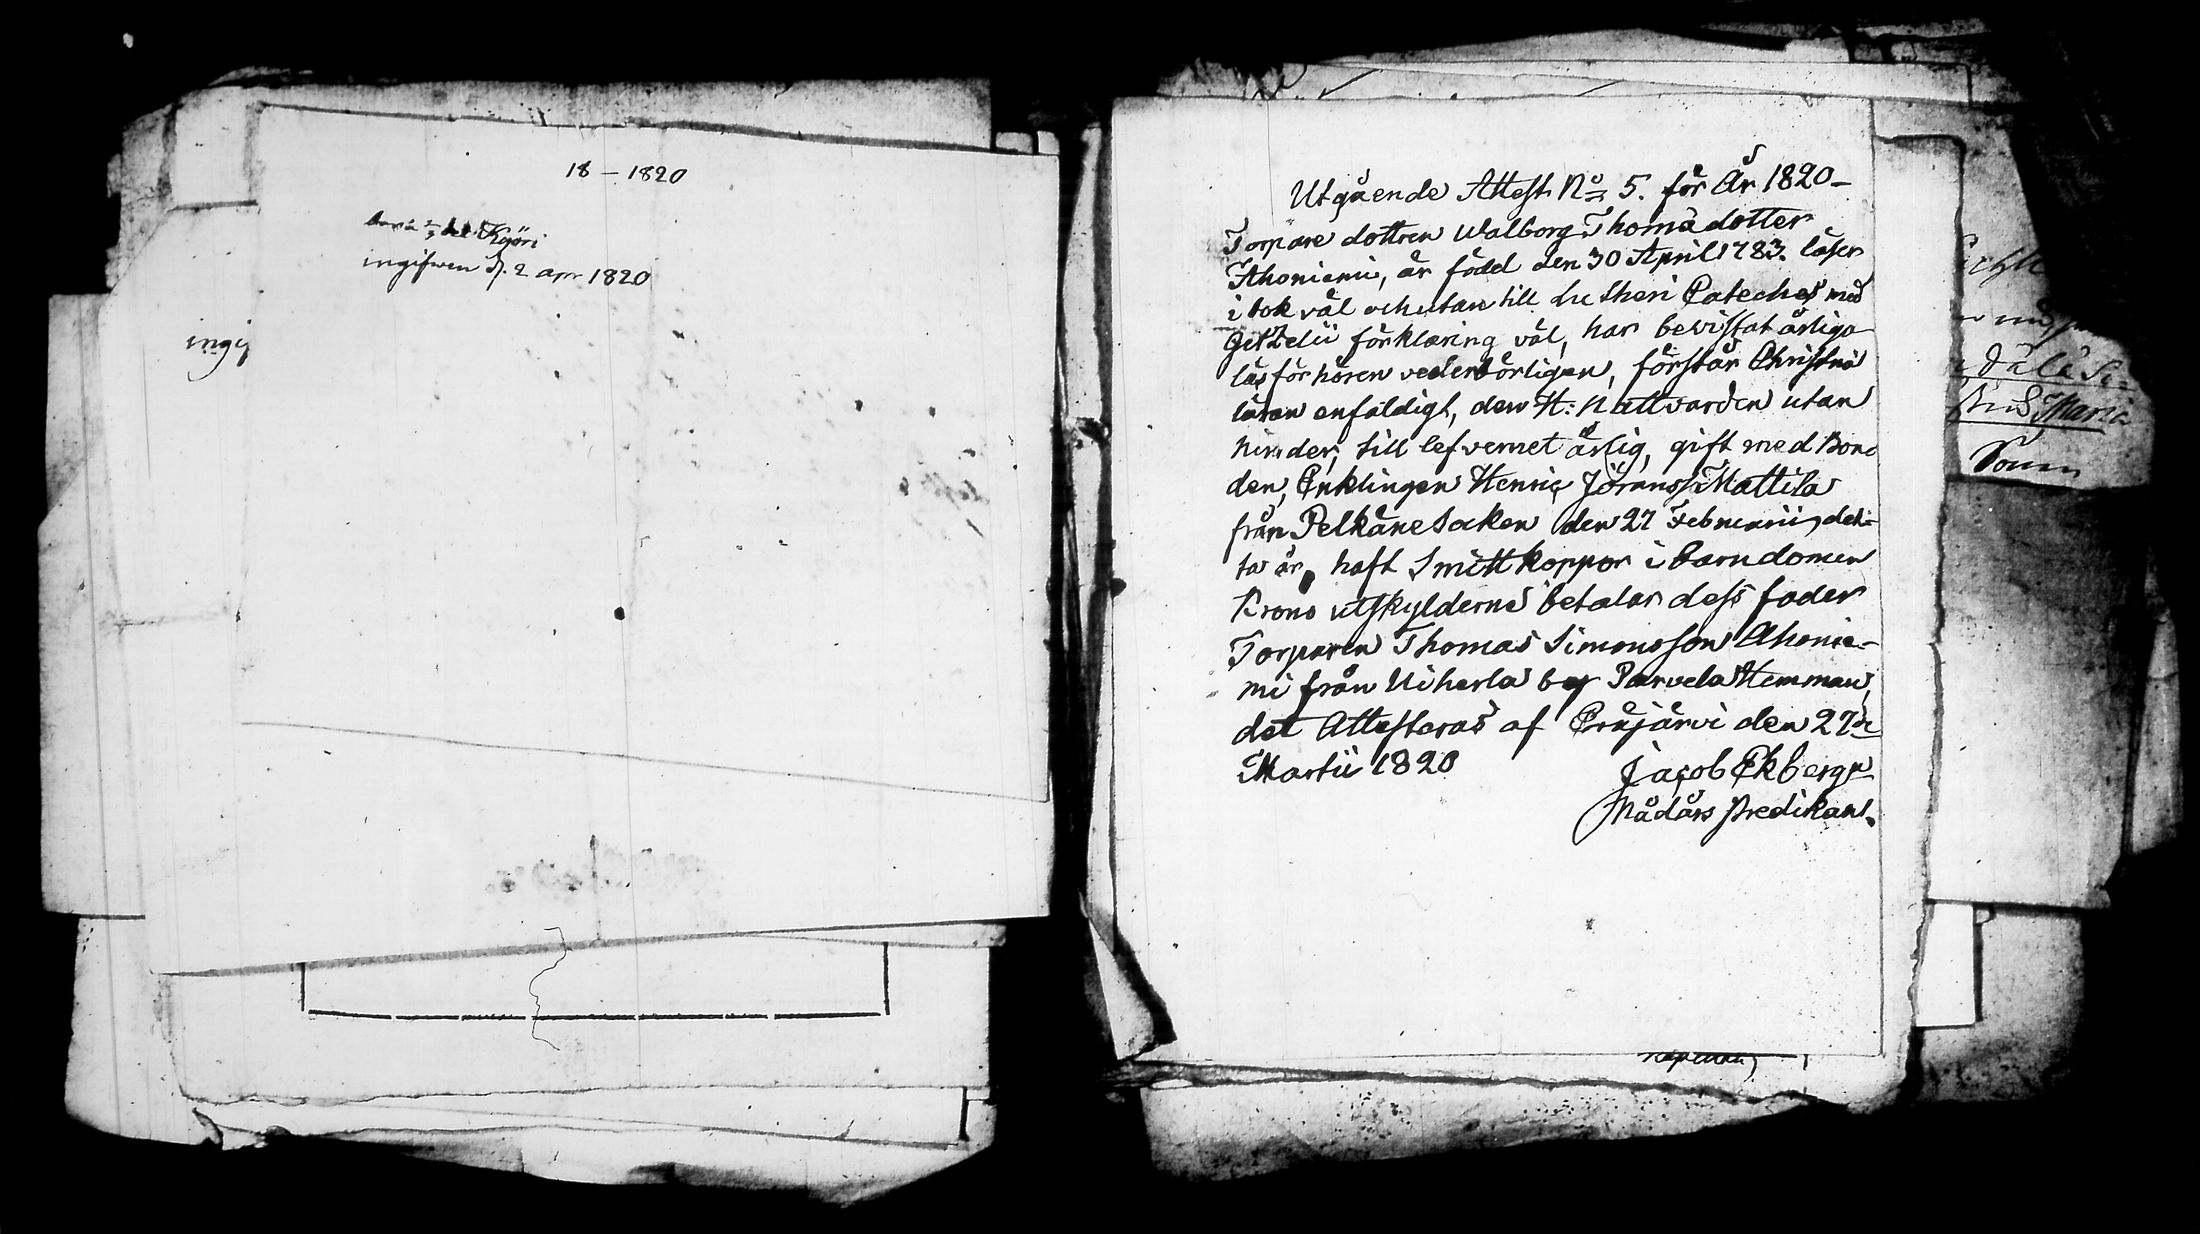 18 – 1820
Kejöri
ingifwen d. 2 apr 1820
ingif
Utgående Attest No 5. för År 1820–
Torpare dottren Walborg Thomædotter
Ahoniemi, är född den 30 April 1783. läser
i bok väl och utan till Lutheri Cateches med
Getzelii förklaring väl, har bewistat årliga
läsförhören vederbörligen, förstår Christna
läran enfaldigt, den H: Nattvarden utan
hinder, till lefvernet ärlig, gift med Bon-
den, Enklingen Henric Jöransson Mattila
från Pelkäne Socken den 27 Februarii det-
ta år, haft Smittkoppor i barndomen
Krono utskylderne betalar dess fader
Torparen Thomas Simonsson Ahonie-
mi från Uiherla by Parvela Hemman,
det Attesteras af Eräjärvi den 27de
Martii 1820
Jacob Ekberg
Nådårs Predikant.
Maria
Soun